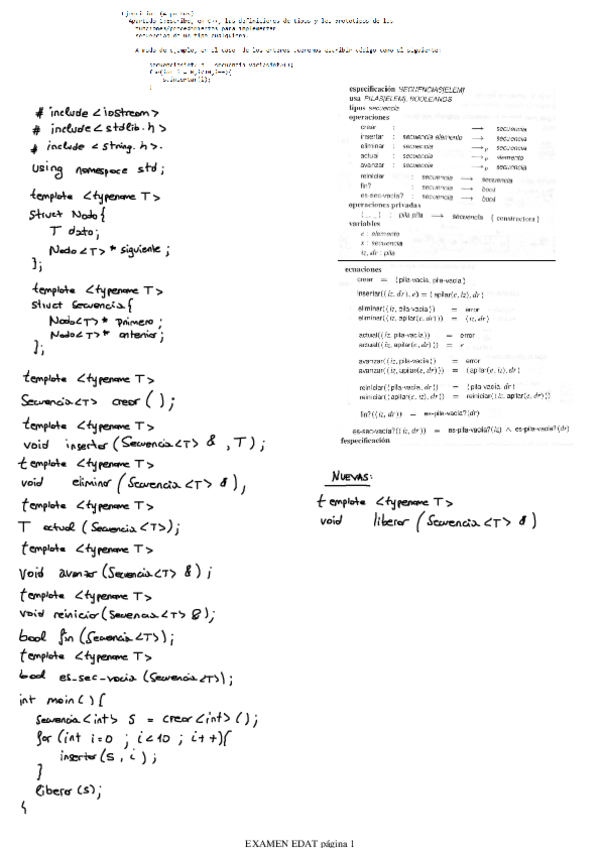 Apartado 1: escribe, en C++, las definiciones de tipos y los prototipos de las
funciones/procedimientos para implementar
secuencias de un tipo cualquiera.
A modo de ejemplo, en el caso de los enteros podremos escribir código como el siguiente:
# include <iostream>
# include <stdlib.h>
# include <string.h>.
using namespace std;
template <typename T>
struct Nodo{
T dato;
Nodo<T> * siguiente;
};
template <typename T>
struct Secuencia{
Nodo<T> * primero;
Nodo<T> * anterior;
};
template <typename T>
Secuencia<T> crear ( );
template <typename T>
void insertar (Secuencia<T> & , T);
template <typename T>
void eliminar (Secuencia<T> &),
template <typename T>
T actual (Secuencia<T>);
template <typename T>
void avanzar (Secuencia<T> &);
template <typename T>
void reiniciar (Secuencia<T> &);
bool fin (Secuencia<T>);
template <typename T>
bool es-sec-vacia (Secuencia<T>);
int main ( ) {
Secuencia<int> S = crear<int>();
for (int i=0 ; i<10 ; i++){
insertar (S, i);
}
liberar (S);
}
especificación SECUENCIAS[ELEM]
usa PILAS[ELEM], BOOLEANOS
tipos secuencia
operaciones
crear : → secuencia
insertar : secuencia elemento → secuencia
eliminar : secuencia →p secuencia
actual : secuencia →p elemento
avanzar : secuencia →p secuencia
reiniciar : secuencia → secuencia
fin? : secuencia → bool
es-sec-vacía? : secuencia → bool
operaciones privadas
⟨_,_⟩ : pila pila → secuencia { constructora }
variables
e : elemento
s : secuencia
iz, dr : pila
ecuaciones
crear = ⟨pila-vacía, pila-vacía⟩
insertar(⟨iz, dr⟩, e) = ⟨apilar(e, iz), dr⟩
eliminar(⟨iz, pila-vacía⟩) = error
eliminar(⟨iz, apilar(e, dr)⟩) = ⟨iz, dr⟩
actual(⟨iz, pila-vacía⟩) = error
actual(⟨iz, apilar(e, dr)⟩) = e
avanzar(⟨iz, pila-vacía⟩) = error
avanzar(⟨iz, apilar(e, dr)⟩) = ⟨apilar(e, iz), dr⟩
reiniciar(⟨pila-vacía, dr⟩) = ⟨pila-vacía, dr⟩
reiniciar(⟨apilar(e, iz), dr⟩) = reiniciar(⟨iz, apilar(e, dr)⟩)
fin?(⟨iz, dr⟩) = es-pila-vacía?(dr)
es-sec-vacía?(⟨iz, dr⟩) = es-pila-vacía?(iz) ∧ es-pila-vacía?(dr)
fespecificación
NUEVAS:
template <typename T>
void liberar (Secuencia <T> &)
EXAMEN EDAT página 1